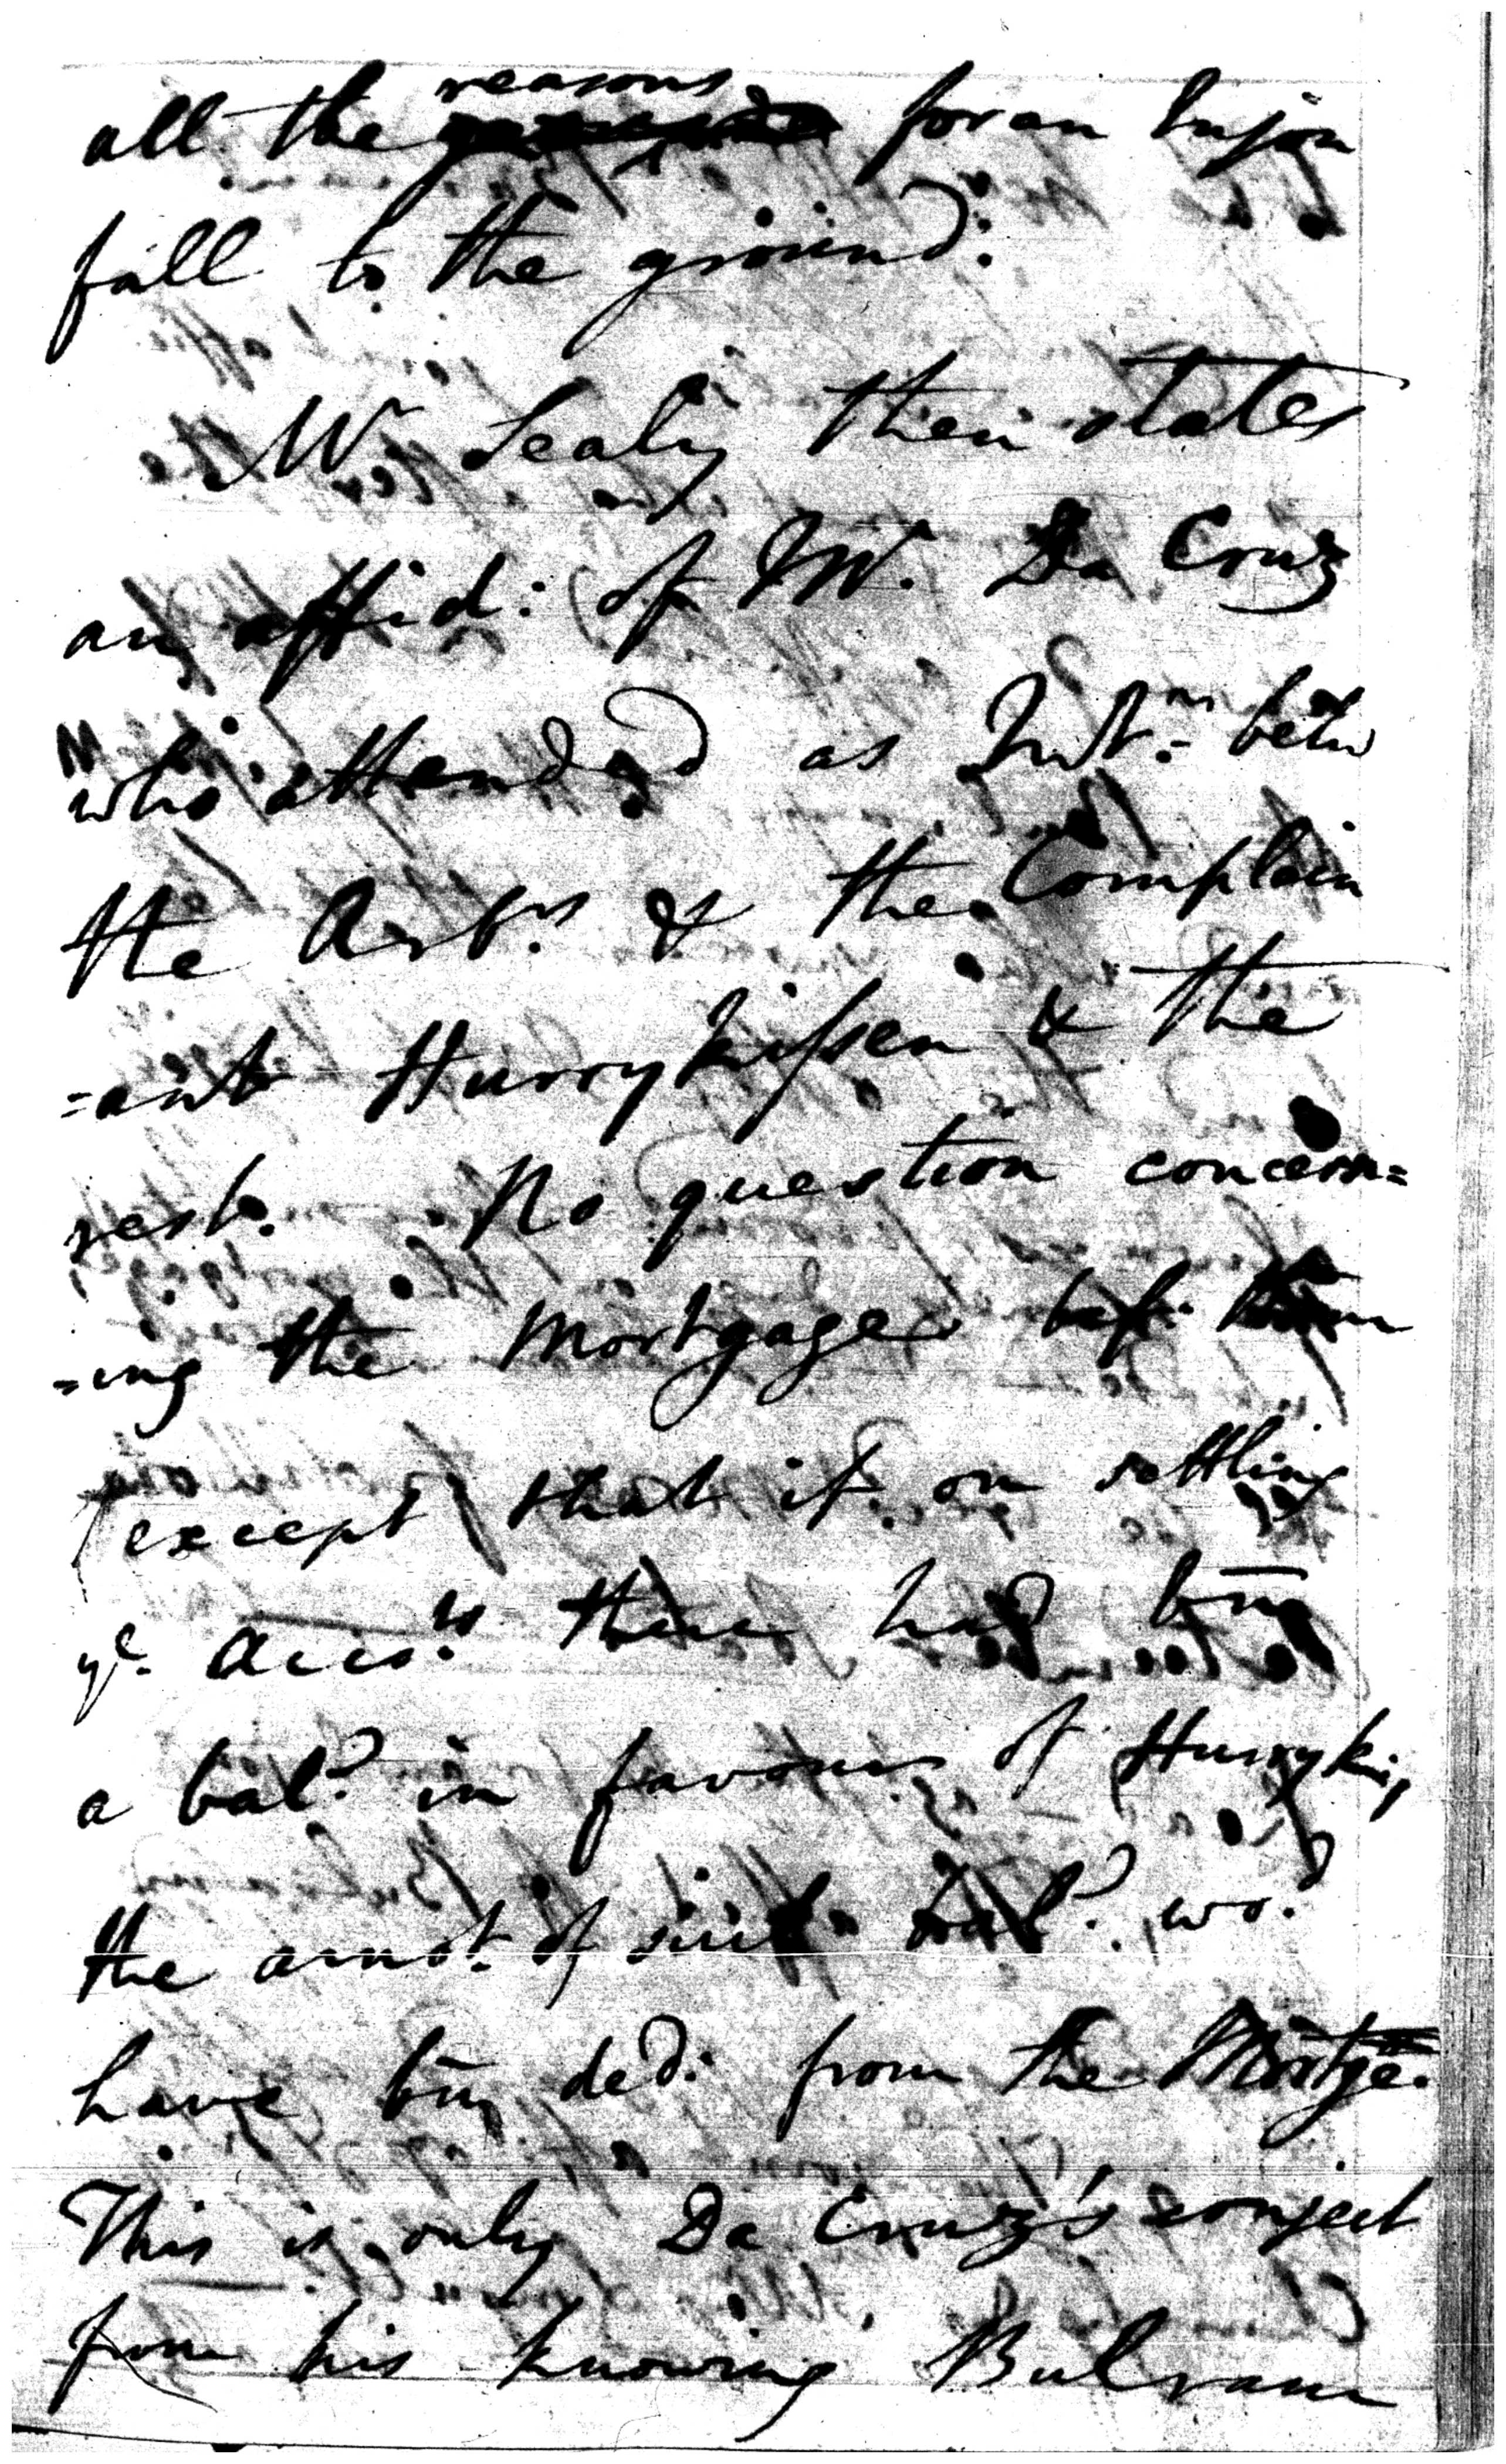 all the reasons for an Injon
fall to the ground.
Mr Sealy then states
an affid: of Mr. Da Cruz
who attended as Intr: betw
the Arbrs & the Complain
=ant Hurrykissen & the
rest. No question concern=
=ing the Mortgage bef. them
except that if on settling
ye. Accots there had been
a bald. in favour of Hurrykis
the amot. of such bald. wod
have bin ded: from the Mortge.
This is only Da Cruz's conject
from his knowing Bulram